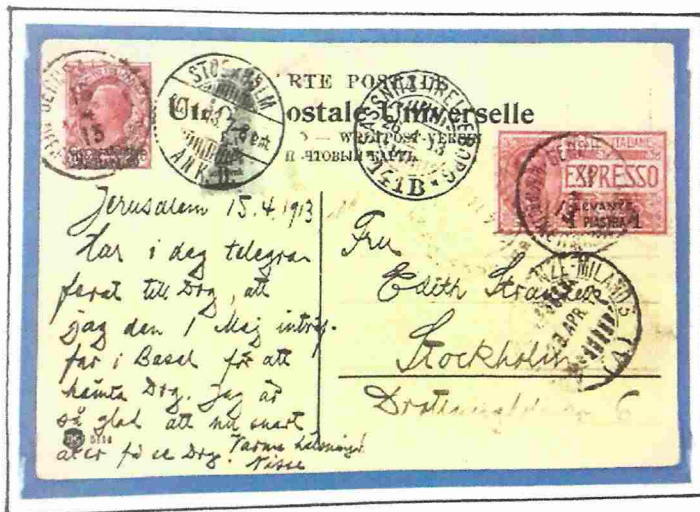 CARTE POSTALE
Union Postale Universelle
WELTPOSTVEREIN
STOCKHOLM
ANK
EXPRESSO
LEVANTE
1 PIASTRA 1
Jerusalem 15.4.1913
Har i dag telegra-
ferat till Dig, att
jag den 1 Maj inträf-
far i Basel för att
hämta Dig. Jag är
så glad att nu snart
åter få se Dig. Varma hälsningar
Nisse
Fru
Edith
Stockholm
Drottninggatan 6